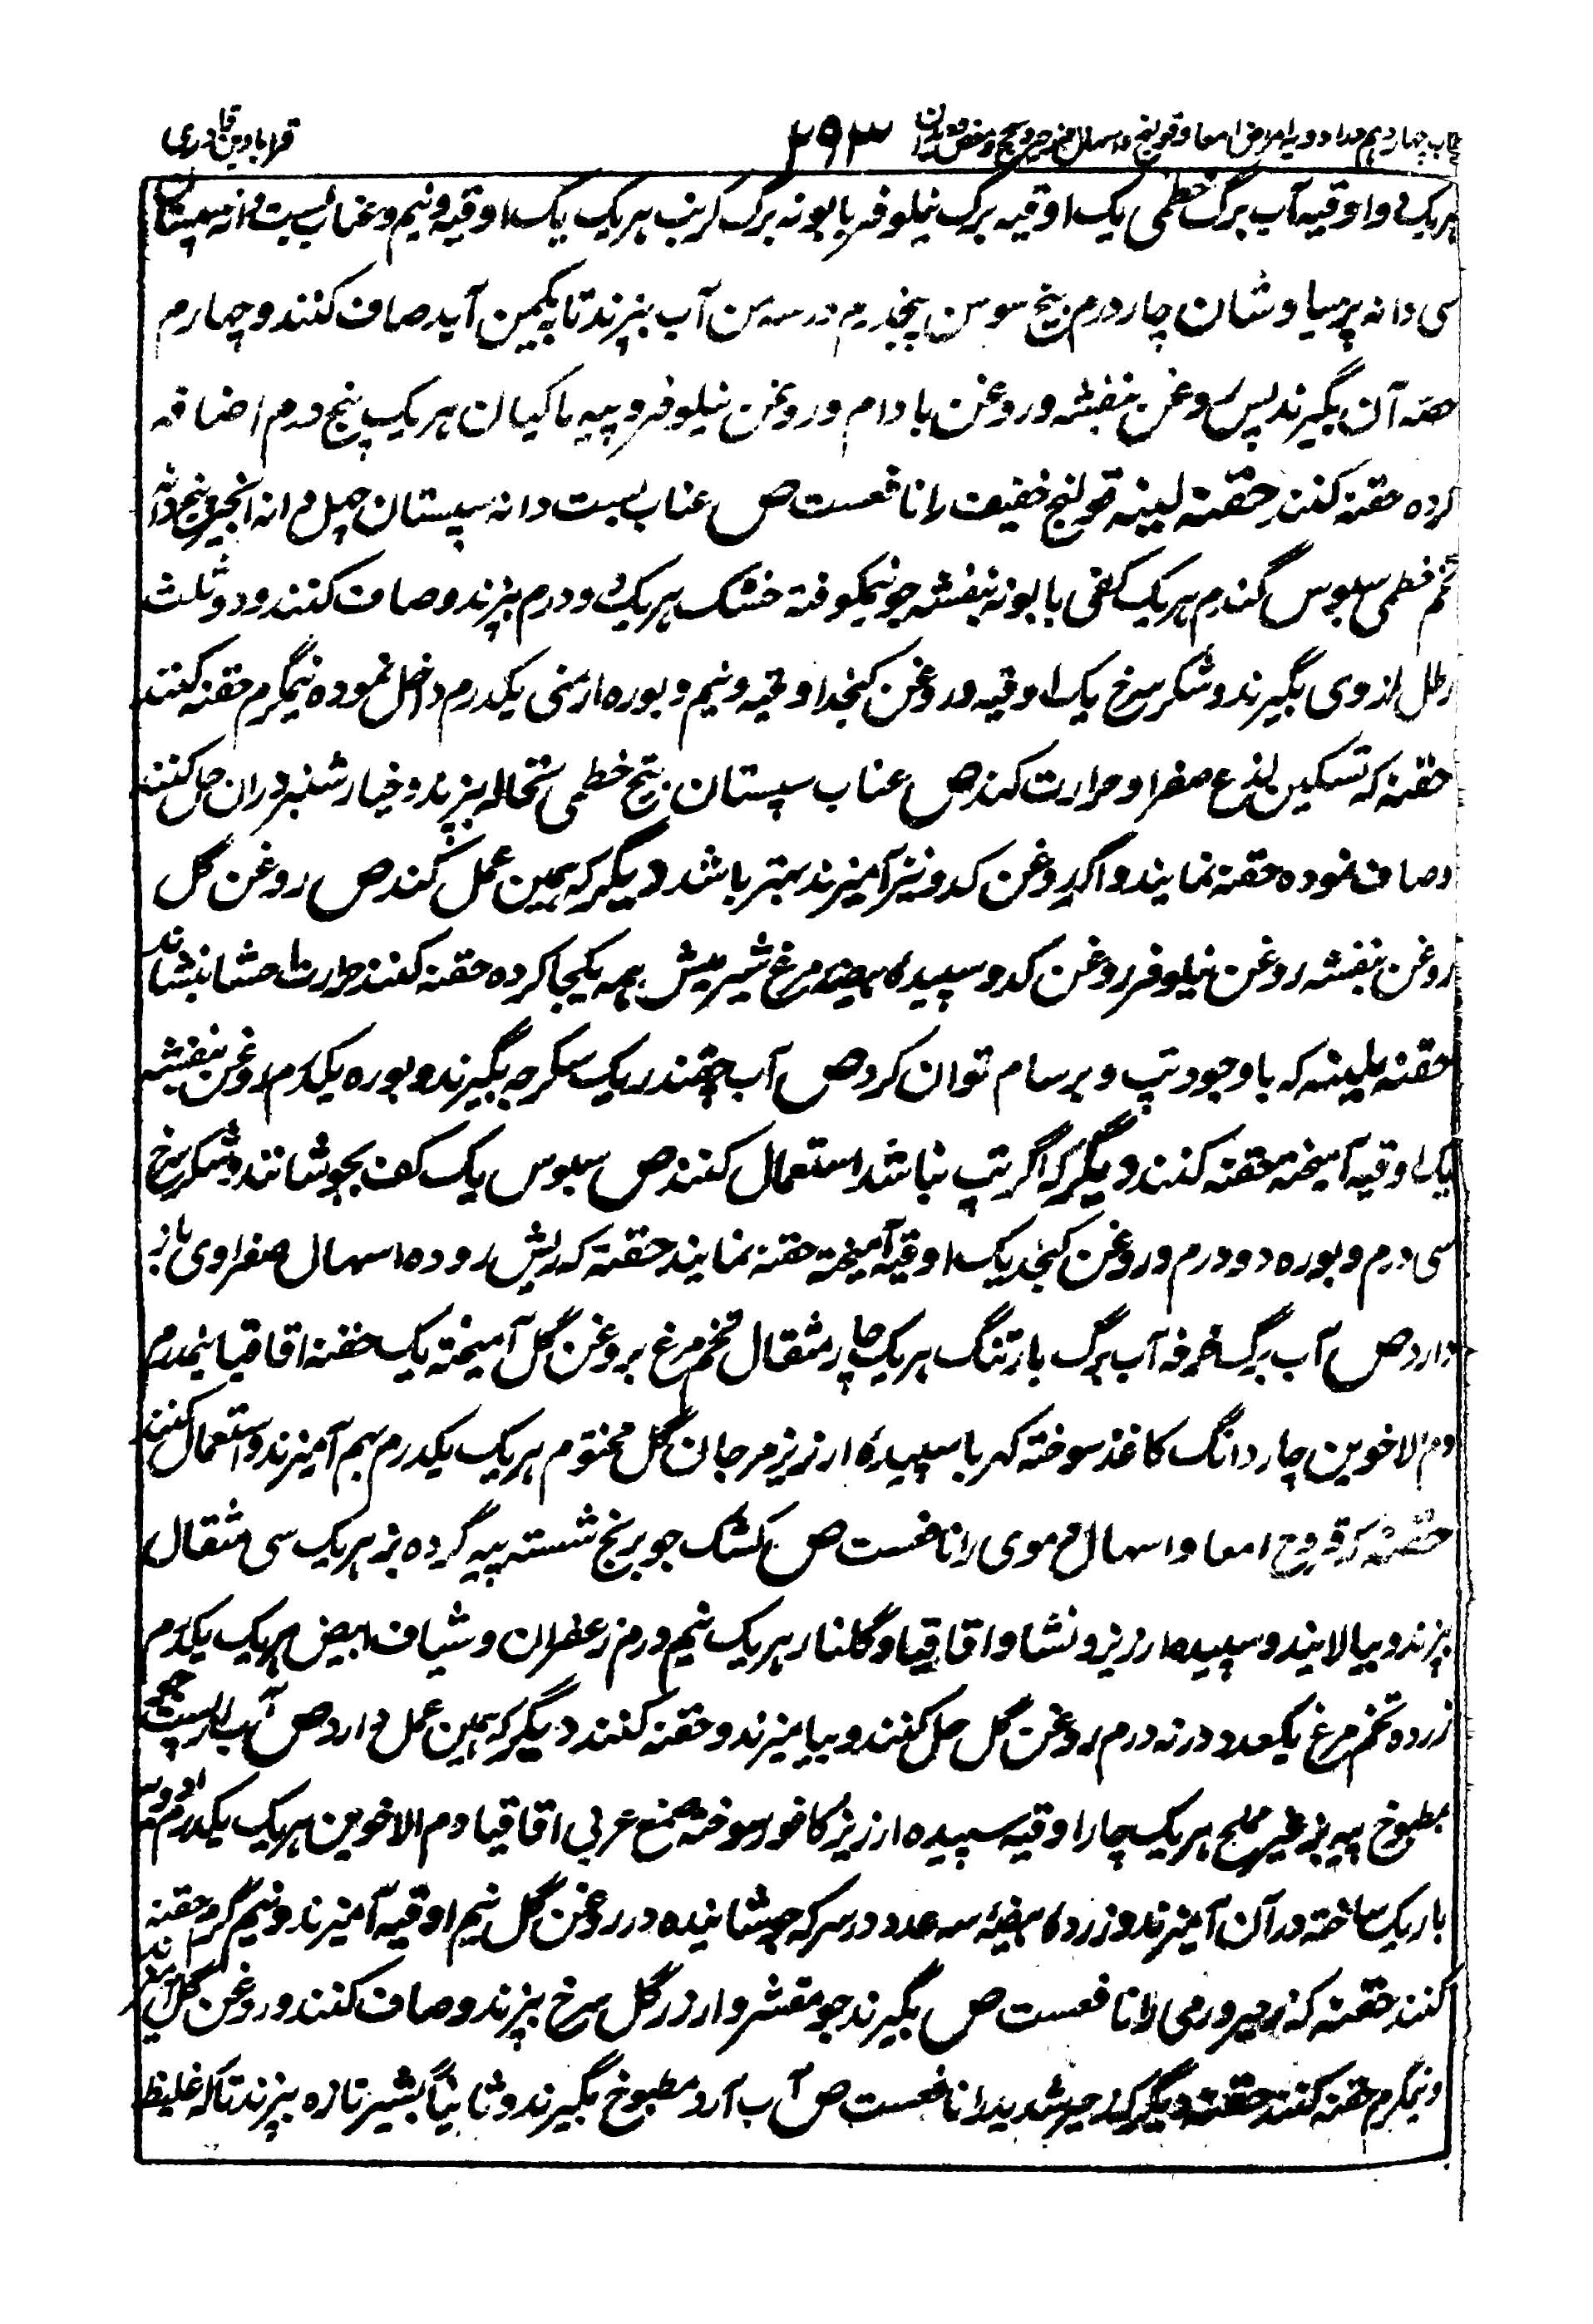 باب چهاردهم در ادویه امراض امعا و قولنج و اسهال و زحیر و سحج و مغص و دیدان ۲۹۳ قرابادین قادری
هریک دو اوقیه آب برگ خطمی یک اوقیه برگ نیلوفر بابونه برگ کرنب هریک یک اوقیه و نیم و عناب بست دانه سپستان
سی دانه پرسیاوشان چار درم بیخ سوسن پنجدرم در سه من آب بپزند تا بیکمن آید صاف کنند و چهارم
حصه آن بگیرند پس روغن بنفشه و روغن بادام و روغن نیلوفر و پیه ماکیان هر یک پنج درم اضافه
کرده حقنه کنند حقنه لینه قولنج خفیف را نافعست ص عناب بست دانه سپستان چهل دانه انجیر پنج دانه
تخم خطمی سبوس گندم هریک کفی بابونه بنفشه جو نیمکوفته خشک هریک دو درم بپزند و صاف کنند و دو ثلث
رطل از وی بگیرند و شکر سرخ یک اوقیه و روغن کنجد اوقیه و نیم و بوره ارمنی یکدرم داخل نموده نیمگرم حقنه کنند
حقنه که تسکین لذع صفرا و حرارت کند ص عناب سپستان بیخ خطمی نخاله بپزند و خیارشنبر دران حل کنند
و صاف نموده حقنه نمایند و اگر روغن کدو نیز آمیزند بهتر باشد دیگر که همین عمل کند ص روغن گل
روغن بنفشه روغن نیلوفر روغن کدو سپیده بیضه مرغ شیر میش همه یکجا کرده حقنه کنند حرارت احشا بنشاند
حقنه ملینه که با وجود تپ و برسام توان کرد ص آب چقندر یک سکرجه بگیرند و بوره یکدرم روغن بنفشه
یک اوقیه آمیخته حقنه کنند دیگر که اگر تپ نباشد استعمال کنند ص سبوس یک کف بجوشانند و شکر سرخ
سی درم و بوره دو درم و روغن کنجد یک اوقیه آمیخته حقنه نمایند حقنه که ریش روده و اسهال صفراوی باز
دارد ص آب برگ خرفه آب برگ بارتنگ هریک چار مثقال تخم مرغ بروغن گل آمیخته یک حقنه اقاقیا نیمدرم
دم الاخوین چار دانگ کاغذ سوخته کهربا سپیده ارزیز مرجان گل مختوم هریک یکدرم بهم آمیزند و استعمال کنند
حقنه که قروح امعا و اسهال دموی را نافعست ص کشک جو برنج شسته پیه گرده بز هریک سی مثقال
بپزند و بپالایند و سپیده ارزیز و نشا و اقاقیا و گلنار هر یک نیم درم زعفران و شیاف ابیض هریک یکدرم
زرده تخم مرغ یکعدد در نه درم روغن گل حل کنند و بیامیزند و حقنه کنند دیگر که همین عمل دارد ص آب
مطبوخ پیه بز غیر مملح هریک چار اوقیه سپیده ارزیز کاغذ سوخته صمغ عربی اقاقیا دم الاخوین هریک یکدرم ادویه
باریک ساخته در آن آمیزند و زرده بیضه سه عدد در سرکه جوشانیده در روغن گل نیم اوقیه آمیزند و نیم گرم حقنه
کنند حقنه که زحیر ورمی را نافعست ص بگیرند جو مقشر و ارزر گل سرخ بپزند و صاف کنند و روغن گل آمیزند
و نیمگرم حقنه کنند حقنه دیگر که زحیر شدید را نافعست ص آب آرد مطبوخ بگیرند و ثانیاً بشیر تازه بپزند تا که غلیظ